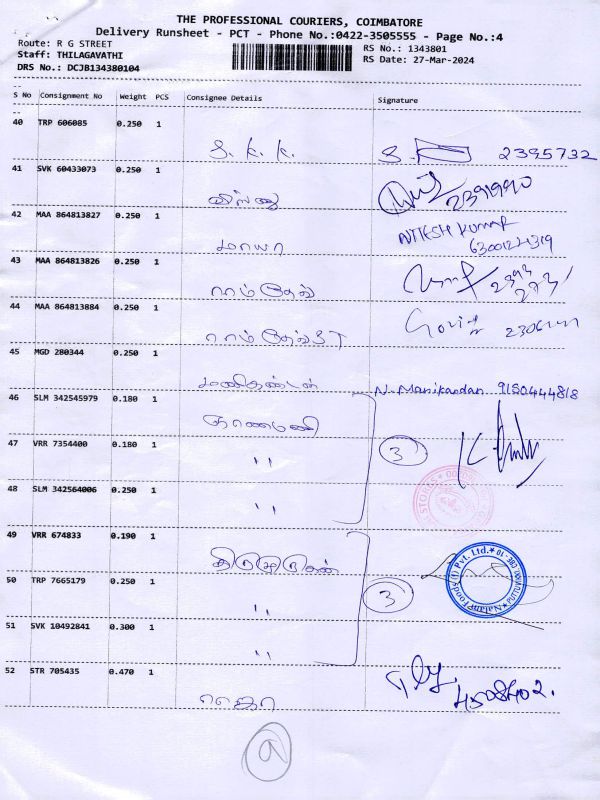 THE PROFESSIONAL COURIERS, COIMBATORE
Delivery Runsheet - PCT - Phone No.:0422-3505555 - Page No.:4
Route: R G STREET
RS No.: 1343801
Staff: THILAGAVATHI
RS Date: 27-Mar-2024
DRS No.: DCJB134380104
S No Consignment No Weight PCS Consignee Details Signature
40 TRP 606085 0.250 1
S. K. K. S. 2395732
41 SVK 60433073 0.250 1
2391990
42 MAA 864813827 0.250 1
NITESH KUMAR
மாயா
43 MAA 864813826 0.250 1
ராம்தேவ்
44 MAA 864813884 0.250 1
ராம்தேவ்
45 MGD 280344 0.250 1
மணிகண்டன் N. Manikandan 9150444818
46 SLM 342545979 0.180 1
ஞானமணி
47 VRR 7354400 0.180 1
" 3
48 SLM 342564006 0.250 1
"
49 VRR 674833 0.190 1
50 TRP 7665179 0.250 1
" 3
51 SVK 10492841 0.300 1
"
52 STR 705435 0.470 1
4508402.